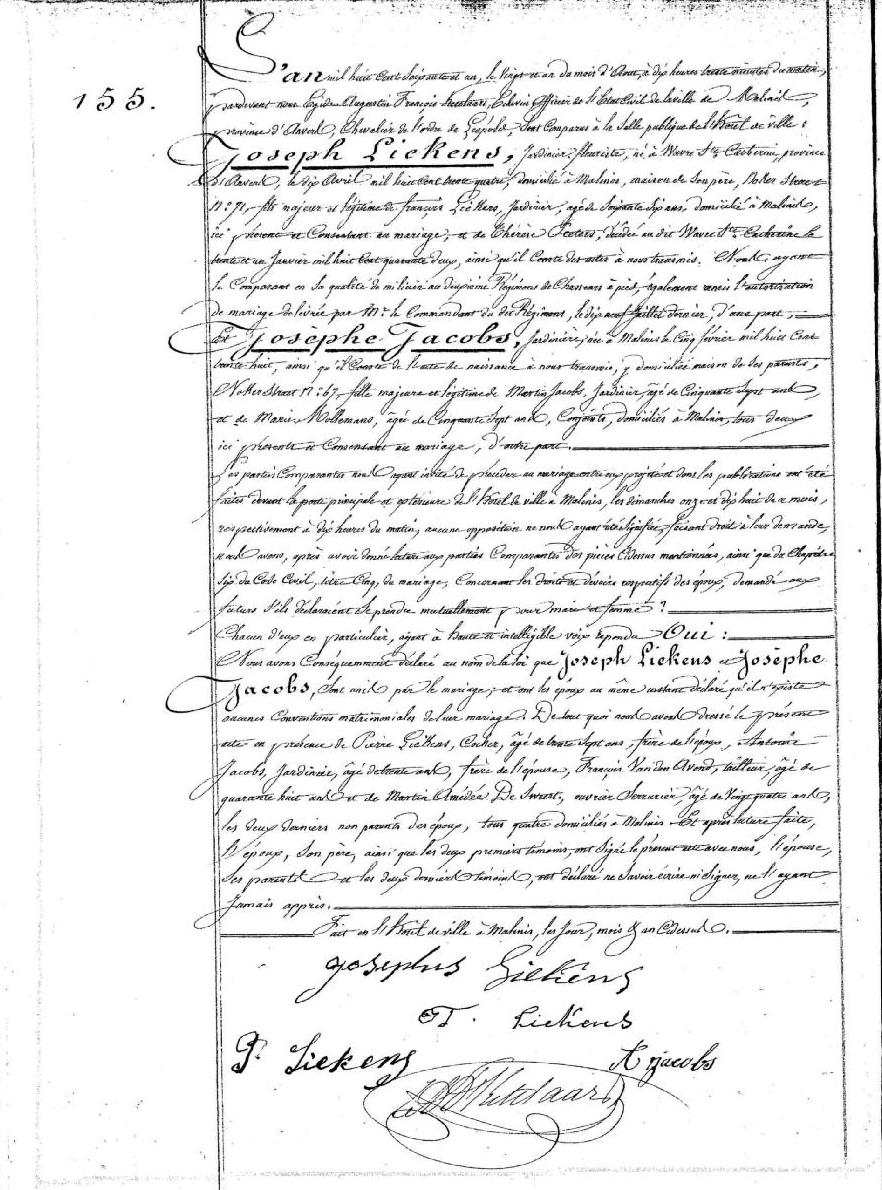 155.
L'an mil huit cent soixante et un, le vingt et un du mois d'Aout, à dix heures trente minutes du matin,
pardevant nous Egide Augustin François Ketelaars, Echevin, Officier de l'Etat Civil de la ville de Malines,
province d'Anvers, Chevalier de l'ordre de Léopold, sont comparus à la Salle publique de l'Hôtel de ville :
Joseph Liekens, Jardinier, fleuriste, né à Wavre Ste Catherine, province
d'Anvers, le six Avril mil huit cent trente quatre, domicilié à Malines, maison de son père,
N° 71, fils majeur et légitime de François Liekens, Jardinier, agé de soixante six ans, domicilié à Malines,
ici présent et Consentant au mariage, et de Thérèse Peeters, décédée au dit Wavre Ste Catherine le
trente et un Janvier mil huit cent quarante deux, ainsi qu'il Conste des actes à nous transmis. Nous ayant
le Comparant en sa qualité de milicien au deuxième Régiment de Chasseurs à pied, également remis l'autorisation
de mariage délivrée par Mr. le Commandant du dit Régiment, le dix neuf Juillet dernier, d'une part,
Et Josèphe Jacobs, Jardinière, née à Malines le Cinq février mil huit Cent
trente huit, ainsi qu'il Conste de l'acte de naissance à nous transmis, y domiciliée maison de ses parents,
N° 67, fille majeure et légitime de Martin Jacobs, Jardinier, âgé de Cinquante Sept ans
et de Marie Mollemans, âgée de Cinquante Sept ans, Conjoints, domiciliés à Malines, tous deux
ici présents et Consentant au mariage, d'autre part.
Les parties Comparantes nous ayant invité de procéder au mariage entre eux projeté et dont les publications ont été
faites devant la porte principale et extérieure de l'Hôtel de ville à Malines, les dimanches onze et dix huit de ce mois,
respectivement à dix heures du matin, aucune opposition ne nous ayant été signifiée, faisant droit à leur demande,
nous avons, après avoir donné lecture aux parties Comparantes des pièces Cidessus mentionnées, ainsi que du Chapitre
Six du Code Civil, titre Cinq, du mariage, Concernant les droits et devoirs respectifs des époux, demandé aux
futurs s'ils déclaraient se prendre mutuellement pour mari et femme ?
Chacun d'eux en particulier, ayant à haute et intelligible voix répondu Oui :
Nous avons Conséquemment déclaré au nom de la loi que Joseph Liekens et Josèphe
Jacobs, sont unis par le mariage, et ont les époux au même instant déclaré qu'il n'existe
aucunes Conventions matrimoniales de leur mariage. De tout quoi nous avons dressé le présent
acte en présence de Pierre Liekens, Cocher, âgé de trente Sept ans, frère de l'époux, Antoine
Jacobs, Jardinier, âgé de trente ans, frère de l'épouse, François Van den Avond, tailleur, âgé de
quarante huit ans et de Martin Amédée De Swert, ouvrier Serrurier, âgé de Vingt quatre ans,
les deux derniers non parents des époux, tous quatre domiciliés à Malines. Et après lecture faite,
l'époux, son père, ainsi que les deux premiers témoins, ont signé le présent acte avec nous, l'épouse,
ses parents et les deux derniers témoins, ont déclaré ne savoir écrire ni signer, ne l'ayant
Jamais appris.
Fait en l'Hôtel de ville à Malines, les Jour, mois & an Cidessus.
Josephus Liekens
F. Liekens
P. Liekens A Jacobs
Ketelaars